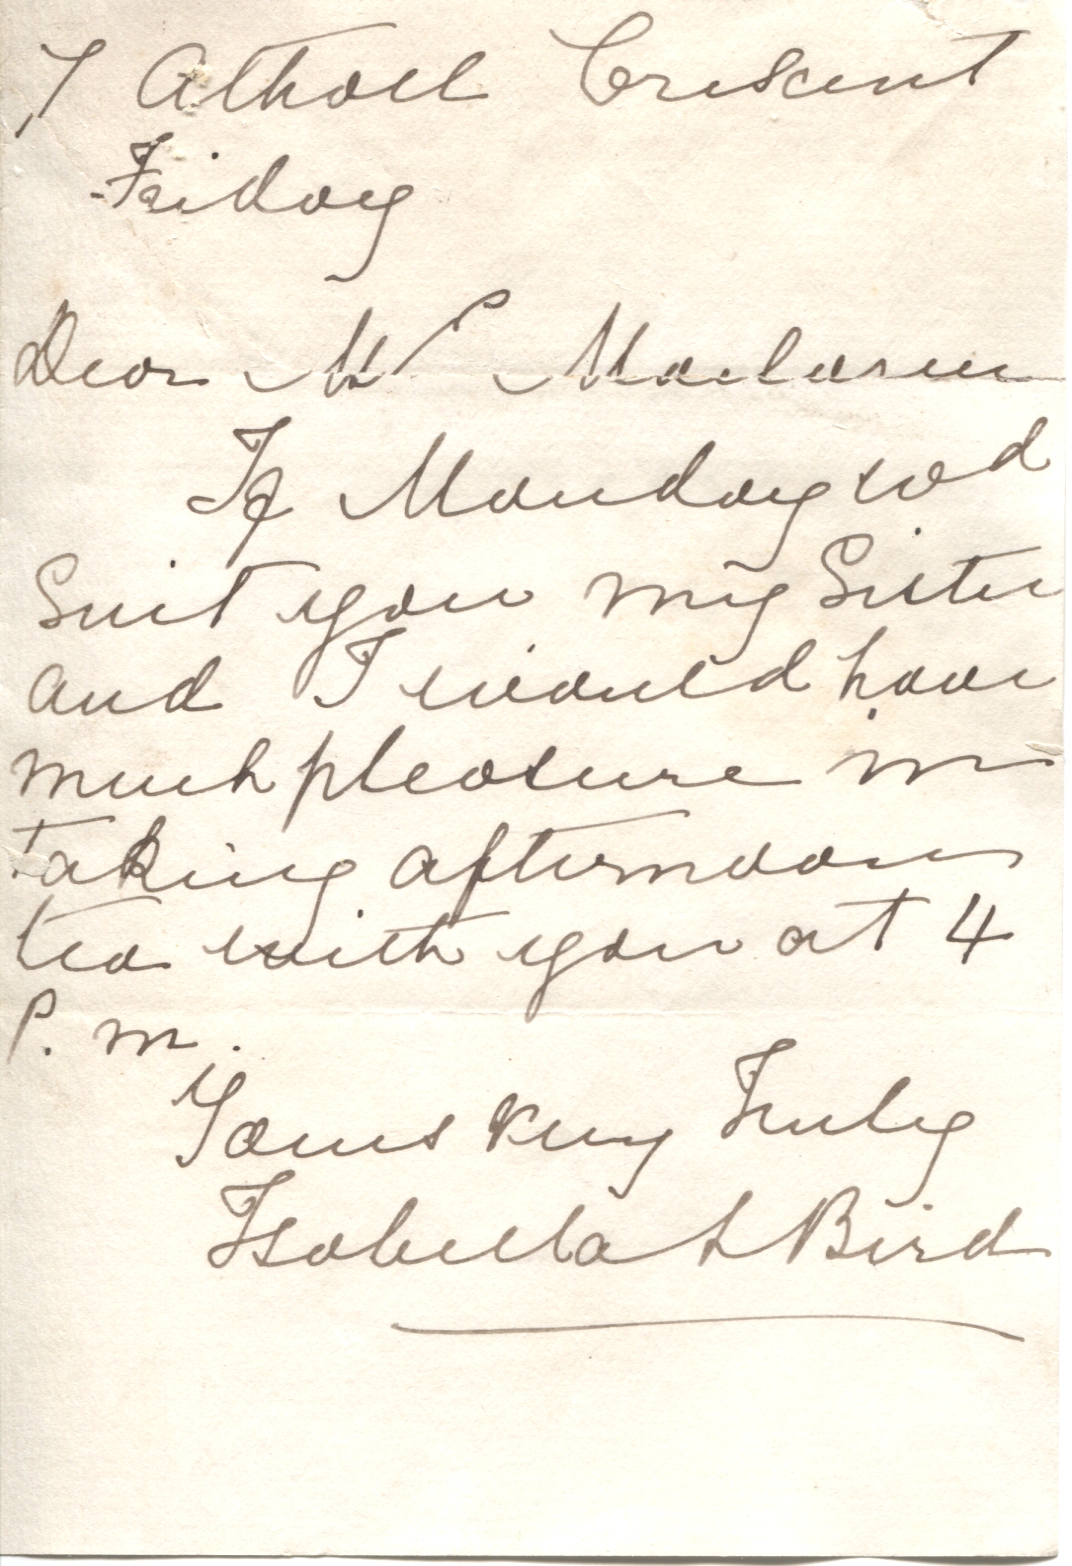 7 Atholl Crescent
Friday
Dear Mr Maclaren
If Monday wd
Suit you my Sister
and I would have
much pleasure in
taking afternoon
tea with you at 4
P. m.
Yours very Truly
Isabella L Bird